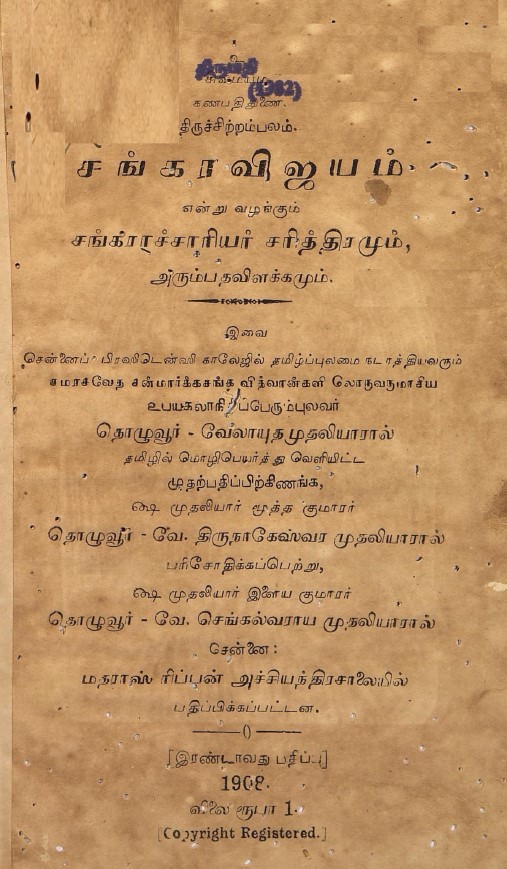 திருமதி
(1982)
சிவமயம்.
கணபதி துணை.
திருச்சிற்றம்பலம்.
சங்கரவிஜயம்
என்று வழங்கும்
சங்கராச்சாரியர் சரித்திரமும்,
அரும்பதவிளக்கமும்.
இவை
சென்னைப் பிரஸிடென்ஸி காலேஜில் தமிழ்ப்புலமை நடாத்தியவரும்
சமரசவேத சன்மார்க்கசங்க வித்வான்களி லொருவருமாகிய
உபயகலாநிதிப்பேரும்புலவர்
தொழுவூர் - வேலாயுதமுதலியாரால்
தமிழில் மொழிபெயர்த்து வெளியிட்ட
முதற்பதிப்பிற்கிணங்க,
ஷை முதலியார் மூத்த குமாரர்
தொழுவூர் - வே. திருநாகேஸ்வர முதலியாரால்
பரிசோதிக்கப்பெற்று,
ஷை முதலியார் இளைய குமாரர்
தொழுவூர் - வே. செங்கல்வராய முதலியாரால்
சென்னை:
மதராஸ் ரிப்பன் அச்சியந்திரசாலையில்
பதிப்பிக்கப்பட்டன.
[இரண்டாவது பதிப்பு]
1908.
விலை ரூபா 1.
[Copyright Registered.]